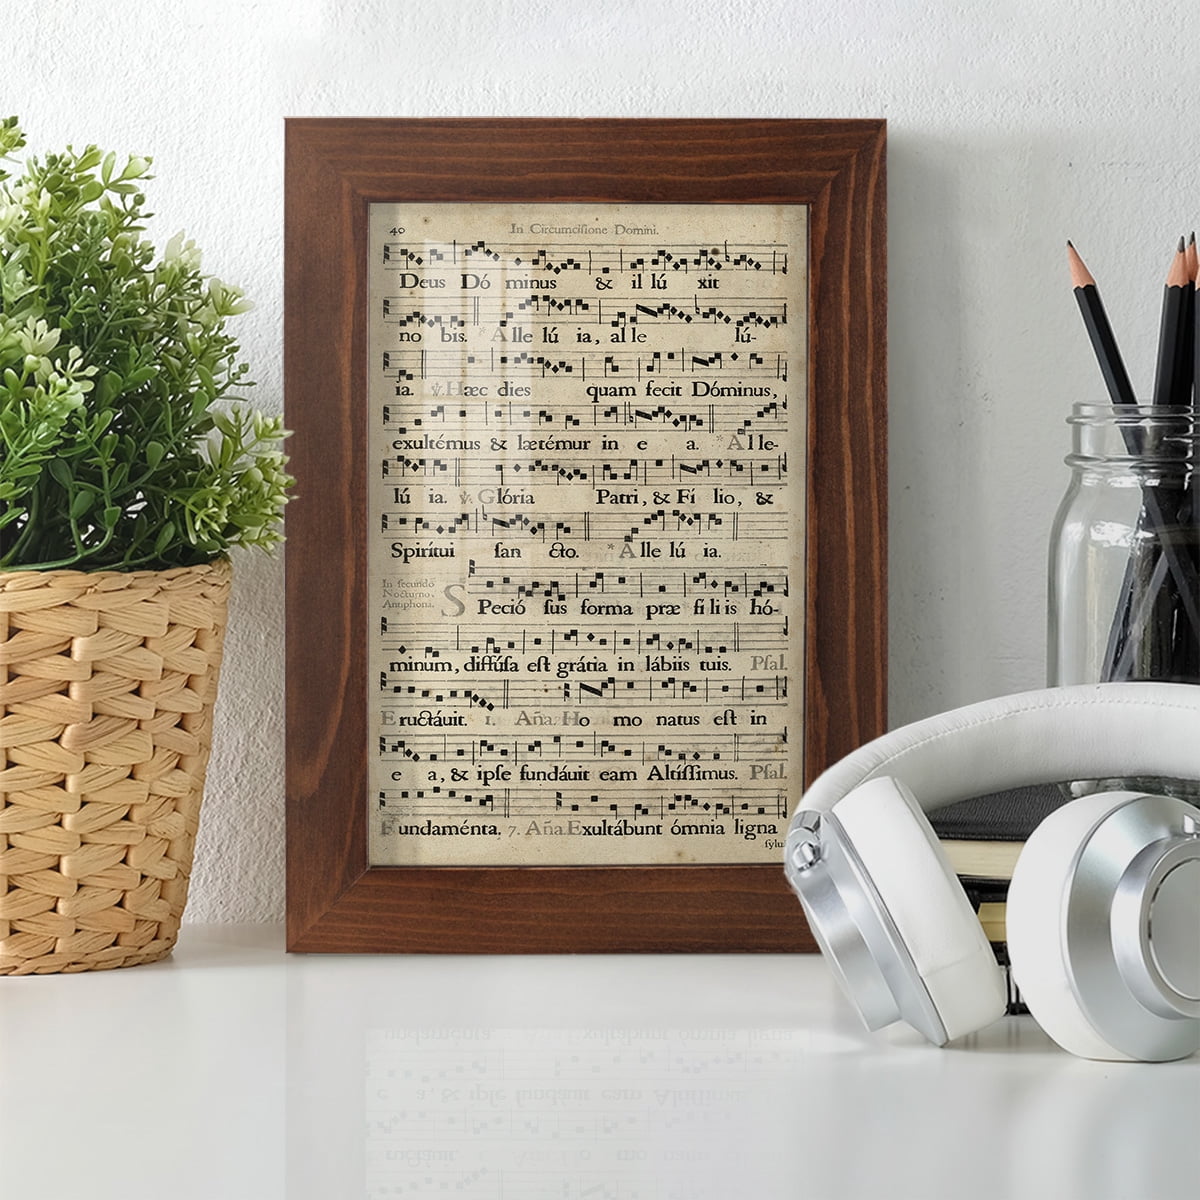 40 In Circumcisione Domini.
Deus Dó minus & il lú xit
no bis. * A lle lú ia, al le lú-
ia. ℣. Hæc dies quam fecit Dóminus,
exultémus & lætémur in e a. * A l le-
lú ia. ℣. Glória Patri, & Fí lio, &
Spirítui ſan cto. * A lle lú ia.
In ſecundo
Nocturno.
Antiphona.
SPeció ſus forma præ fi li is hó-
minum, diffúſa eſt grátia in lábiis tuis. Pſal.
Eructáuit. 1. Aña. Ho mo natus eſt in
e a, & ipſe fundáuit eam Altíſſimus. Pſal.
Fundaménta. 7. Aña. Exultábunt ómnia ligna
ſylu